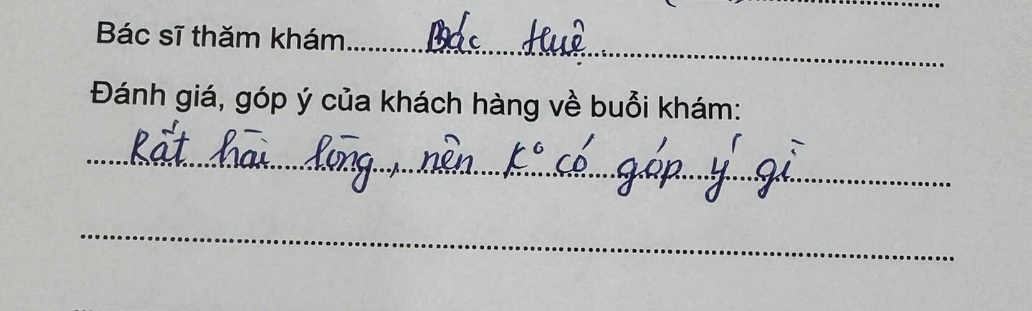 Bác sĩ thăm khám.....Bác Huệ.....
Đánh giá, góp ý của khách hàng về buổi khám:
Rất hài lòng, nên k° có góp ý gì